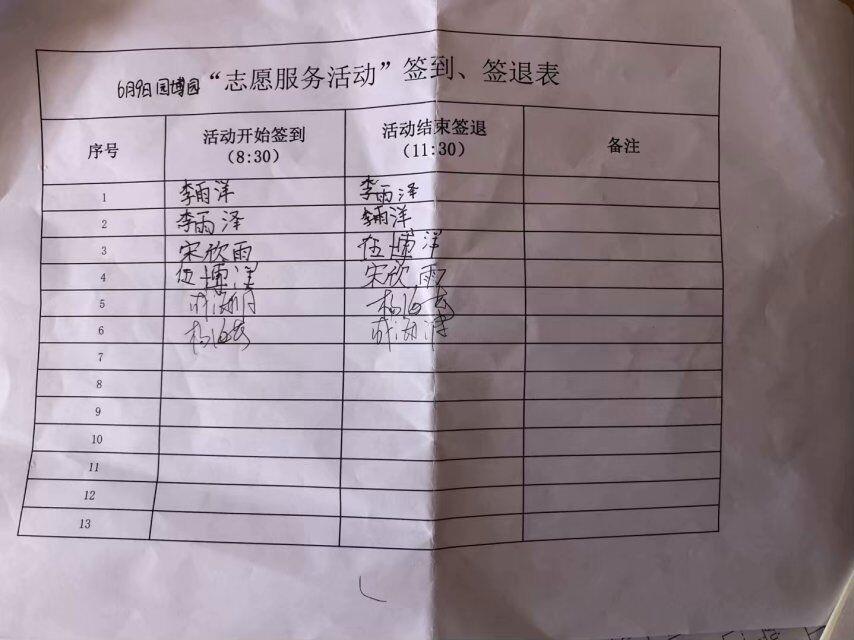 6月9日园博园“志愿服务活动”签到、签退表
序号 活动开始签到 (8:30) 活动结束签退 (11:30) 备注
1 李雨洋 李雨泽
2 李雨泽 李雨洋
3 宋欣雨 伍博洋
4 伍博洋 宋欣雨
5
6
7
8
9
10
11
12
13